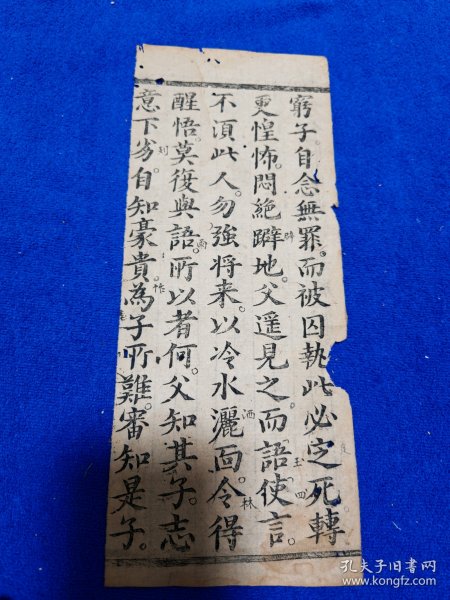 窮子自念無罪。而被囚執此必定死。轉
更惶怖。悶絶躃地。父遥見之。而語使言。
不須此人。勿強将来。以冷水灑面。令得
醒悟。莫復與語。所以者何。父知其子。志
意下劣。自知豪貴。為子所難。審知是子。
孔夫子旧书网
www.kongfz.com